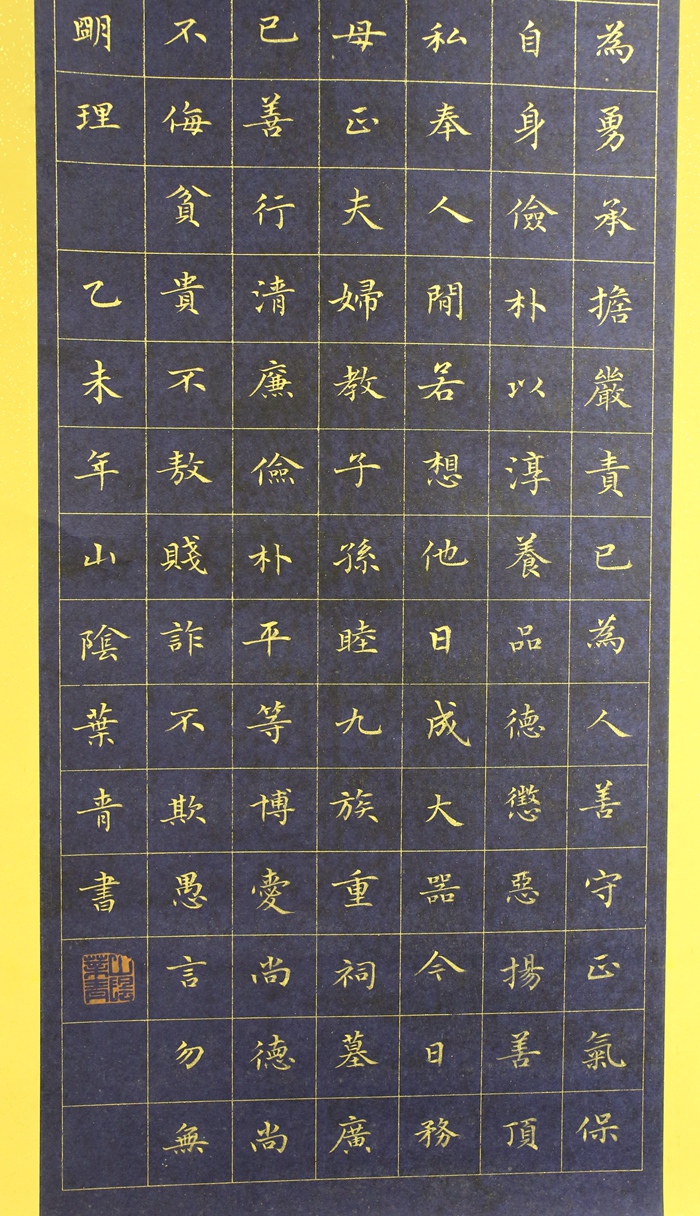 為勇承擔嚴責已為人善守正氣保
自身儉朴以淳養品德懲惡揚善頂
私奉人間若想他日成大器今日務
母正夫婦教子孫睦九族重祠墓廣
已善行清廉儉朴平等博愛尚德尚
不侮貧貴不敖賤詐不欺愚言勿無
明理 乙未年山陰葉青書
山陰葉青